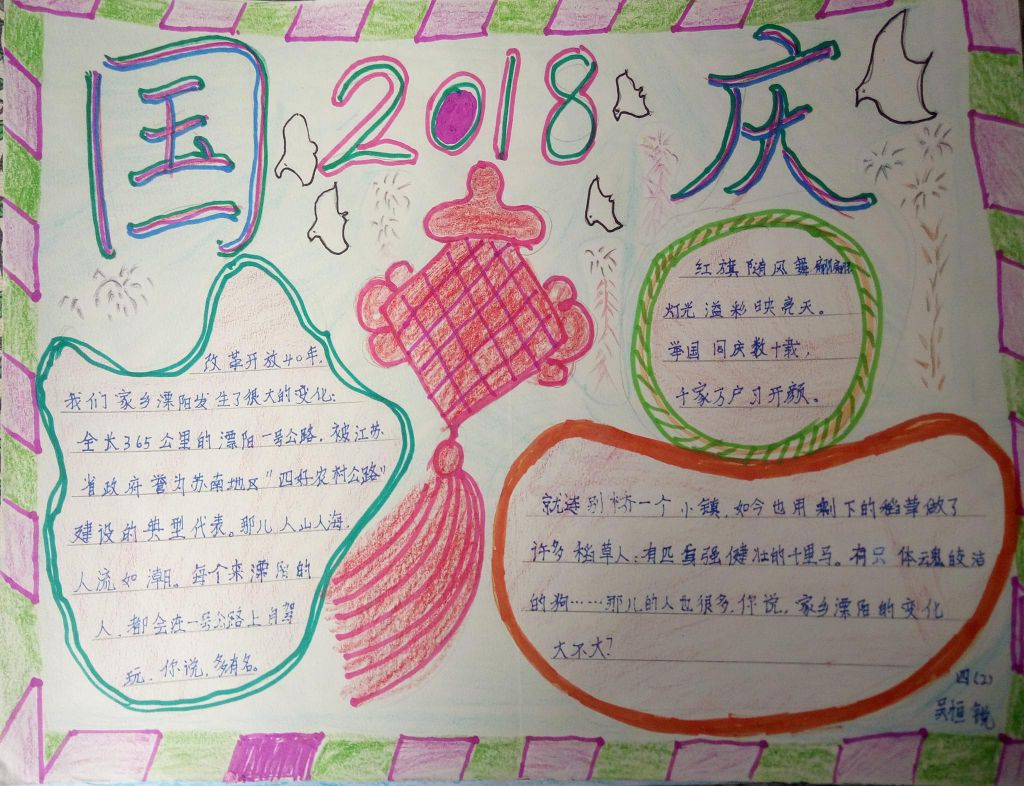 国 2018 庆
改革开放40年,
我们家乡溧阳发生了很大的变化:
全长365公里的溧阳一号公路,被江苏
省政府誉为苏南地区"四好农村公路"
建设的典型代表。那儿人山人海,
人流如潮。每个来溧阳的
人,都会在一号公路上自驾
玩,你说,多有名。
红旗随风舞翩翩
灯光溢彩映亮天。
举国同庆数十载,
千家万户习开颜。
就连别桥一个小镇,如今也用剩下的稻草做了
许多稻草人:有匹强健壮的千里马。有只体皎洁
的狗……那儿的人也很多,你说,家乡溧阳的变化
大不大?
四(2)
吴恒锐